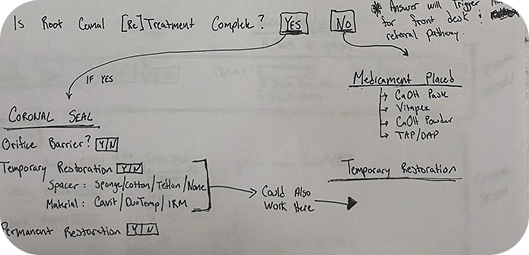 Is Root Canal [Re]Treatment Complete? YES NO
* Answer will Trigger
for front desk :
referral pathway.
IF YES
Medicament Placed
CaOH Paste
Vitapex
CaOH Powder
TAP/DAP
CORONAL SEAL
Orifice Barrier? Y/N
Temporary Restoration Y/N
Spacer : Sponge/Cotton/Teflon/None
Material : Cavit/DuoTemp/IRM
Could Also
Work Here
Temporary Restoration
Permanent Restoration Y/N